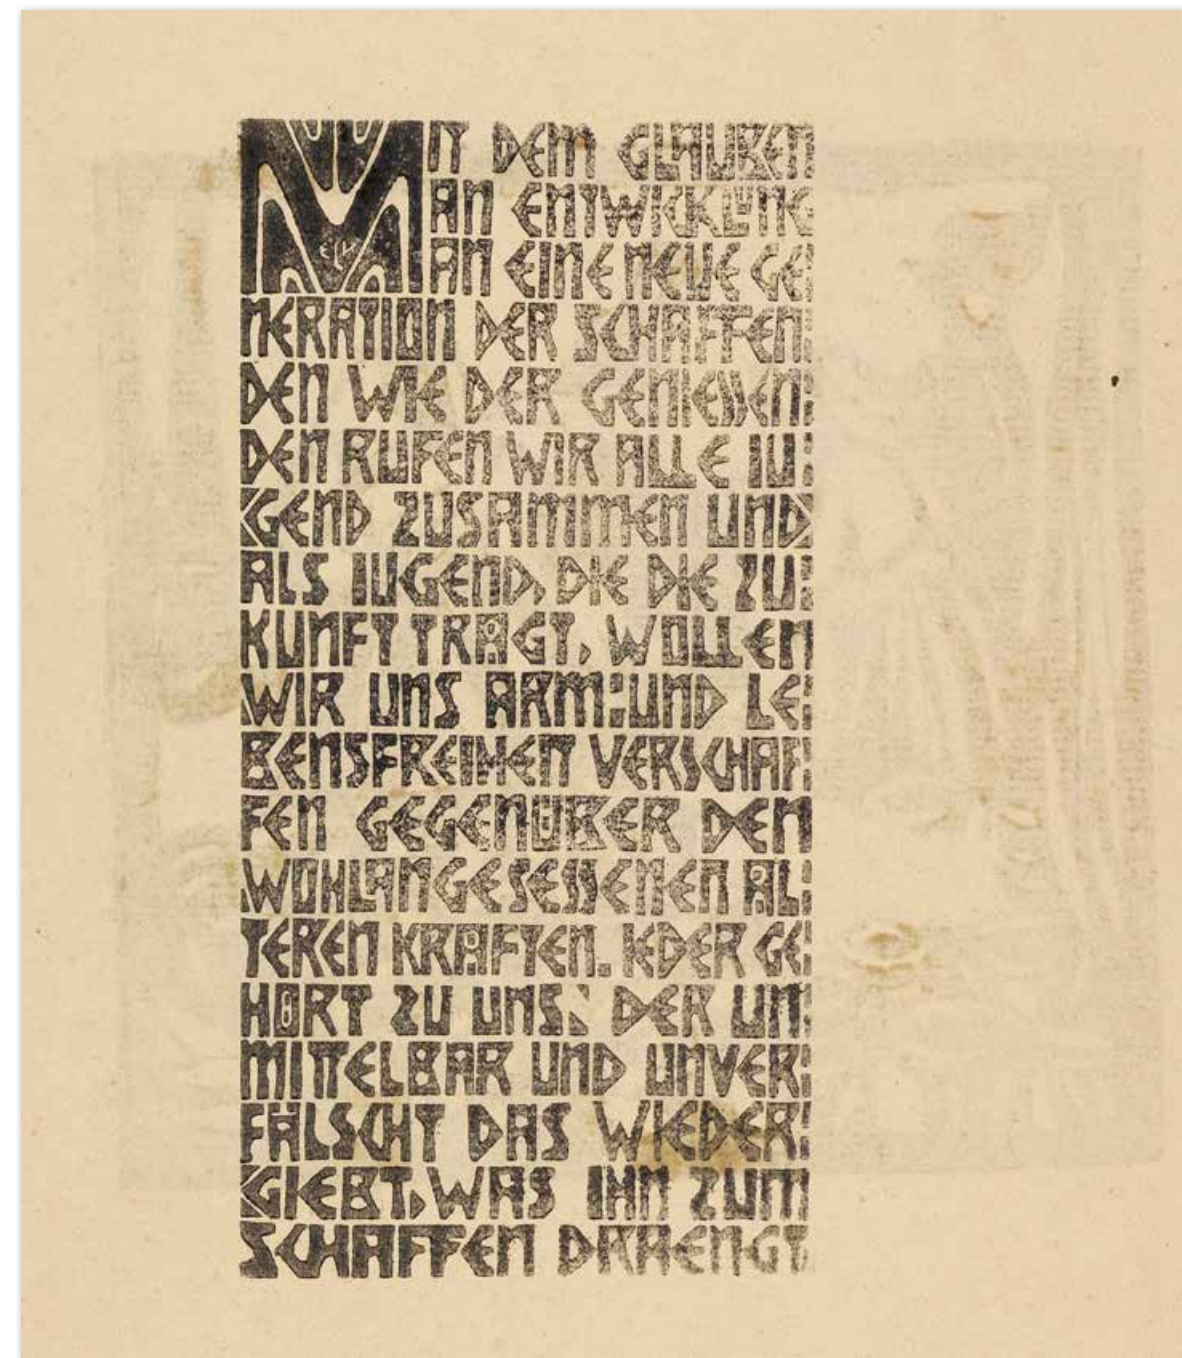 MIT DEM GLAUBEN
AN ENTWICKLUNG
AN EINE NEUE GE:
NERATION DER SCHAFFEN:
DEN WIE DER GENIESSEN:
DEN RUFEN WIR ALLE IU:
GEND ZUSAMMEN UND
ALS IUGEND, DIE DIE ZU:
KUNFT TRÄGT, WOLLEN
WIR UNS ARM: UND LE:
BENSFREIHEIT VERSCHAF:
FEN GEGENÜBER DEN
WOHLANGESESSENEN ÄL:
TEREN KRÄFTEN. IEDER GE:
HÖRT ZU UNS: DER UN:
MITTELBAR UND UNVER:
FÄLSCHT DAS WIEDER:
GIEBT, WAS IHN ZUM
SCHAFFEN DRAENGT